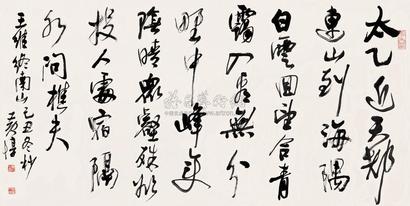 太乙近天都
連山到海隅
白雲回望合青
靄入看無分
野中峰變
陰晴眾壑殊欲
投人處宿隔
水問樵夫
王維終南山己丑冬杪
黃惇